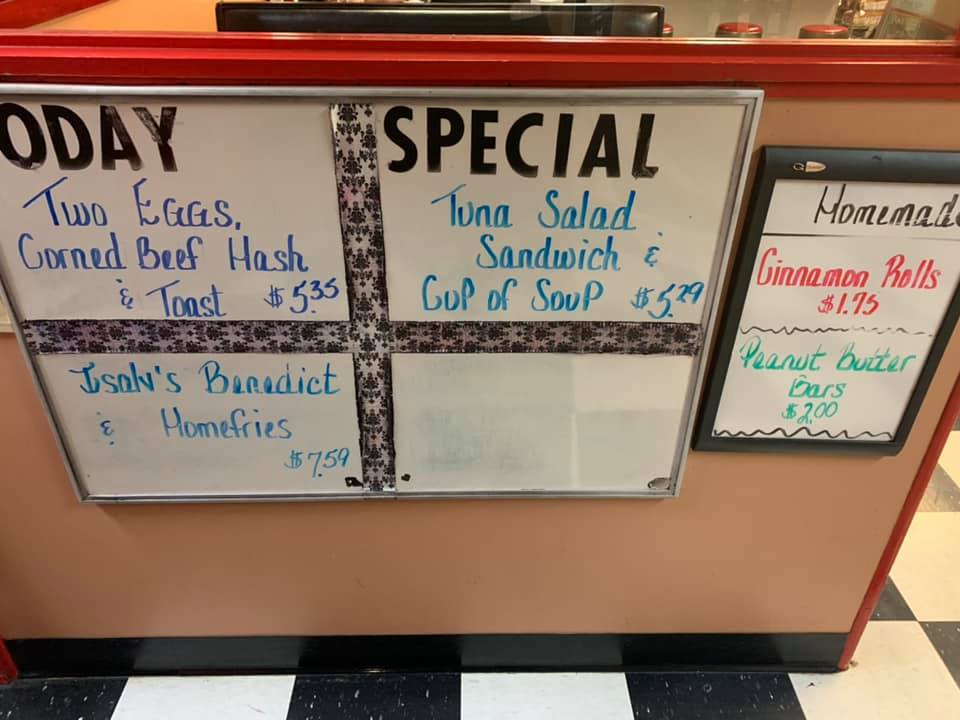 ODAY SPECIAL
Two Eggs,
Corned Beef Hash
& Toast $5.35
Tuna Salad
Sandwich &
Cup of Soup $5.29
Isaly's Benedict
& Homefries
$7.59
Homemade
Cinnamon Rolls
$1.75
Peanut Butter
Bars
$2.00